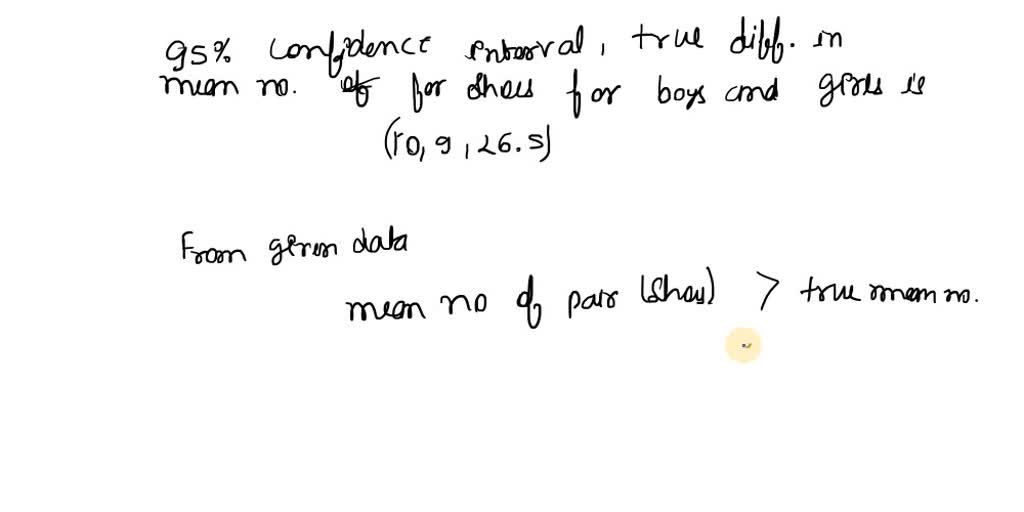 95% confidence interval, true diff. in
mean no. of for shoes for boys and girls is
(10, 9, 26.5)
From given data
mean no of pair (shoes) > true mean no.